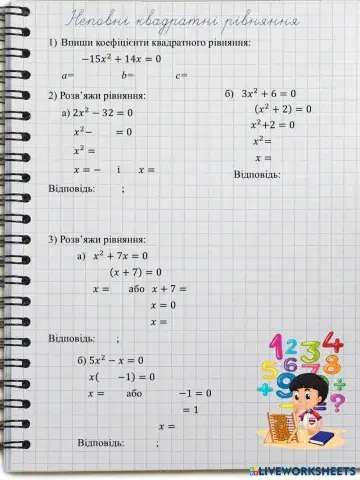 Неповні квадратні рівняння
1) Впиши коефіцієнти квадратного рівняння:
−15x² + 14x = 0
a= b= c=
2) Розв’яжи рівняння:
а) 2x² − 32 = 0
x² − = 0
x² =
x = − і x =
Відповідь: ;
б) 3x² + 6 = 0
(x² + 2) = 0
x²+2 = 0
x²=
x =
Відповідь:
3) Розв’яжи рівняння:
а) x² + 7x = 0
(x + 7) = 0
x = або x + 7 =
x = 0
x =
Відповідь: ;
б) 5x² − x = 0
x( −1) = 0
x = або −1 = 0
= 1
x =
Відповідь: ;
LIVEWORKSHEETS